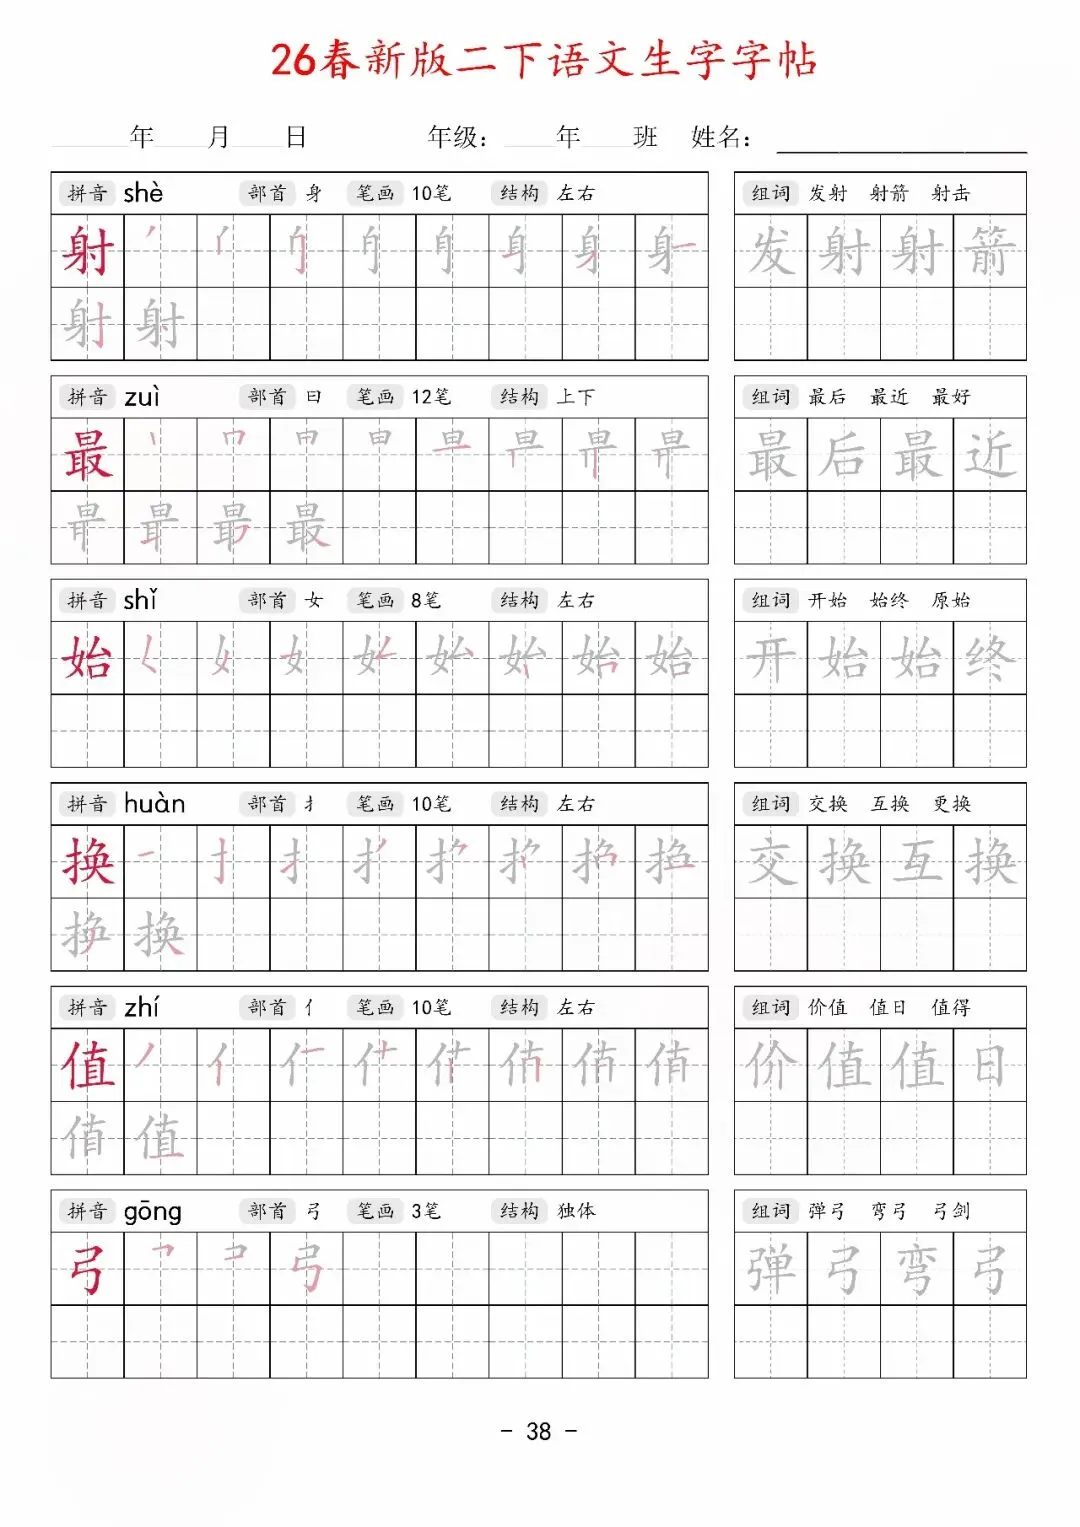 26春新版二下语文生字字帖
年 月 日 年级: 年 班 姓名:
拼音 shè 部首 身 笔画 10笔 结构 左右 组词 发射 射箭 射击
射 发射射箭
射射
拼音 zuì 部首 曰 笔画 12笔 结构 上下 组词 最后 最近 最好
最 最后最近
最
拼音 shǐ 部首 女 笔画 8笔 结构 左右 组词 开始 始终 原始
始 始 开始始终
拼音 huàn 部首 扌 笔画 10笔 结构 左右 组词 交换 互换 更换
换 交换互换
换
拼音 zhí 部首 亻 笔画 10笔 结构 左右 组词 价值 值日 值得
值 价值值日
值
拼音 gōng 部首 弓 笔画 3笔 结构 独体 组词 弹弓 弯弓 弓剑
弓 弓 弹弓弯弓
- 38 -